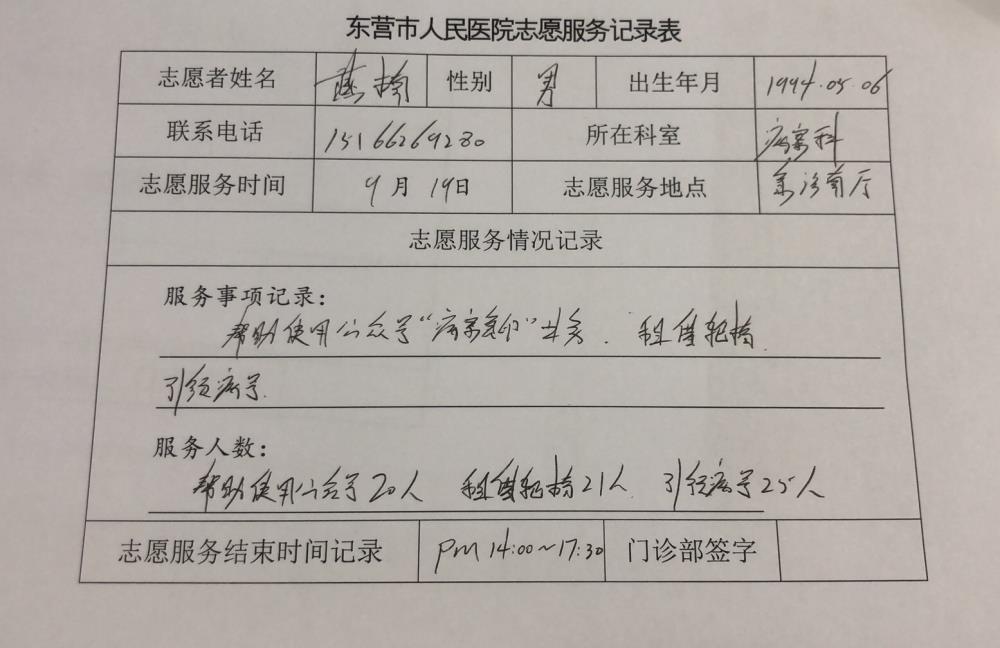 东营市人民医院志愿服务记录表
志愿者姓名 燕楠 性别 男 出生年月 1994.05.06
联系电话 15166269280 所在科室 病案科
志愿服务时间 9月19日 志愿服务地点 急诊前厅
志愿服务情况记录
服务事项记录:
帮助使用公众号“病案复印”业务. 租借轮椅
引领病号.
服务人数:
帮助使用公众号20人 租借轮椅21人 引领病号25人
志愿服务结束时间记录 pm 14:00~17:30 门诊部签字